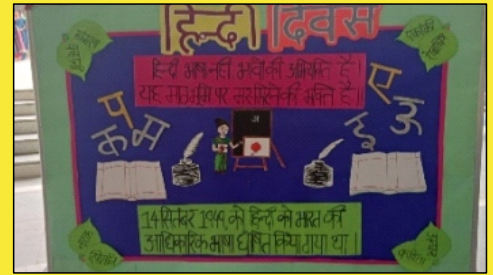 हिन्दी दिवस
हिन्दी भाषा नहीं, भावों की अभिव्यक्ति है।
यह मातृभूमि पर मर मिटने की भक्ति है॥
प
क म
ए
इ उ
अ
14 सितंबर 1949 को हिन्दी को भारत की
आधिकारिक भाषा घोषित किया गया था।